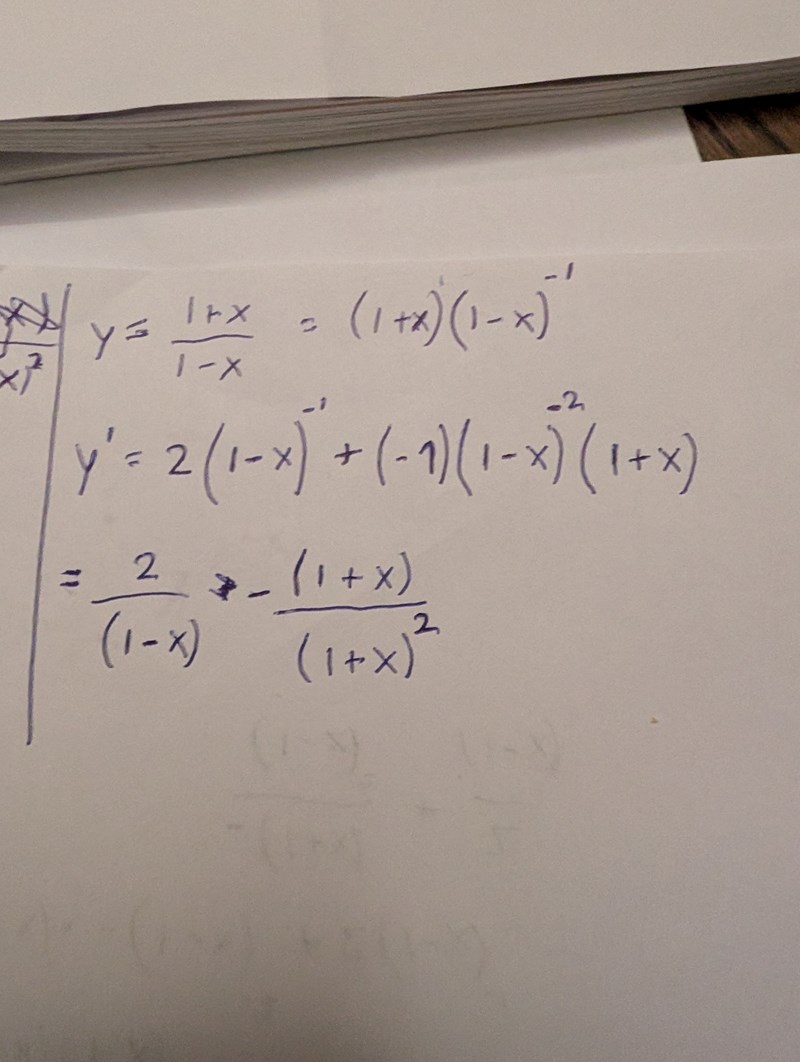 y = \frac{1+x}{1-x} = (1+x)(1-x)^{-1}
y' = 2(1-x)^{-1} + (-1)(1-x)^{-2}(1+x)
= \frac{2}{(1-x)} - \frac{(1+x)}{(1+x)^2}
x)^2